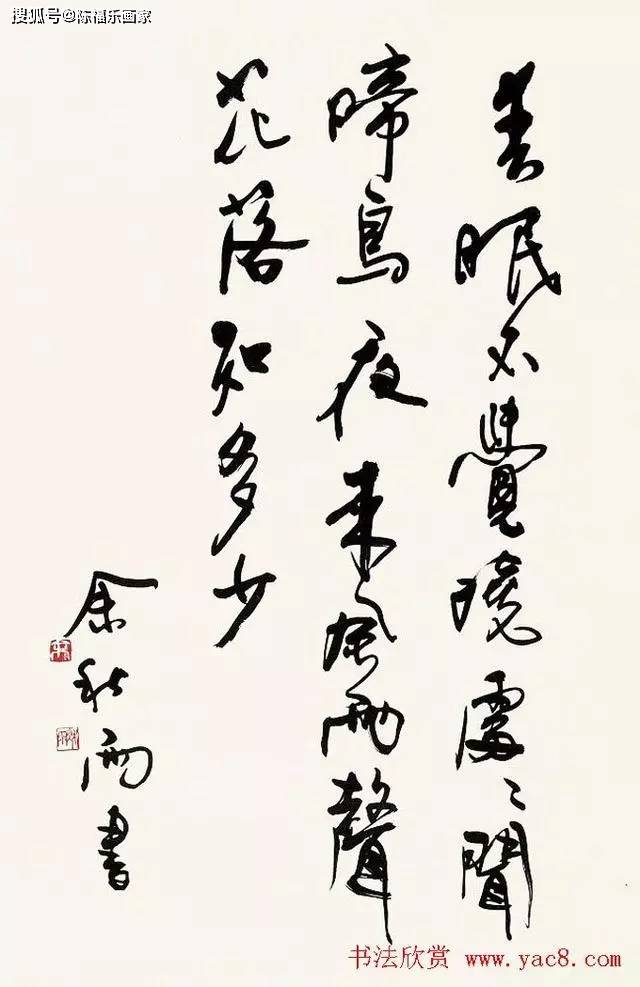 搜狐号@陈福乐画家
春眠不覺曉處〻聞
啼鳥夜来風雨聲
花落知多少
余秋雨書
书法欣赏 www.yac8.com